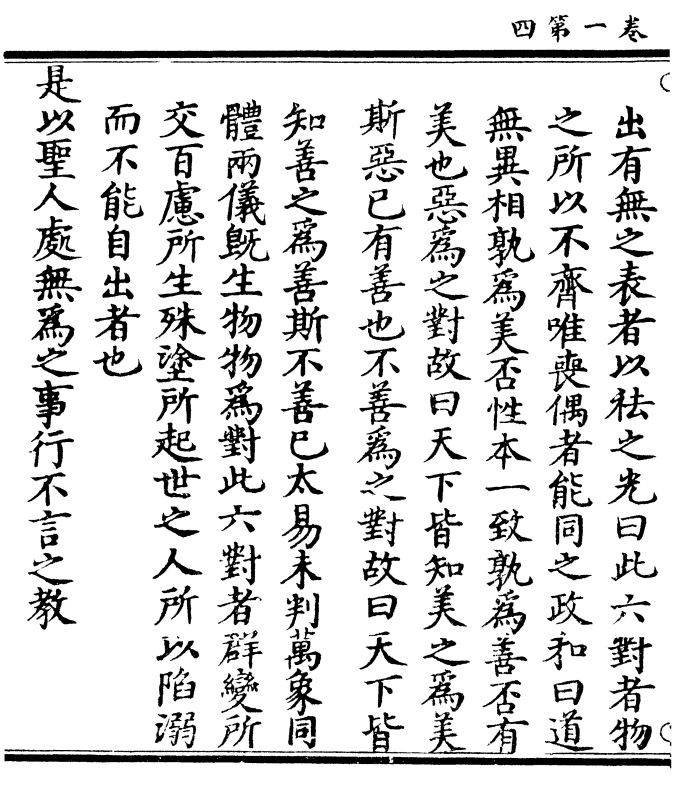 四第一卷
出有無之表者以祛之光曰此六對者物
之所以不齊唯喪偶者能同之政和曰道
無異相孰爲美否性本一致孰爲善否有
美也惡爲之對故曰天下皆知美之爲美
斯惡已有善也不善爲之對故曰天下皆
知善之爲善斯不善已太易未判萬象同
體兩儀旣生物物爲對此六對者群變所
交百慮所生殊塗所起世之人所以陷溺
而不能自出者也
是以聖人處無爲之事行不言之教